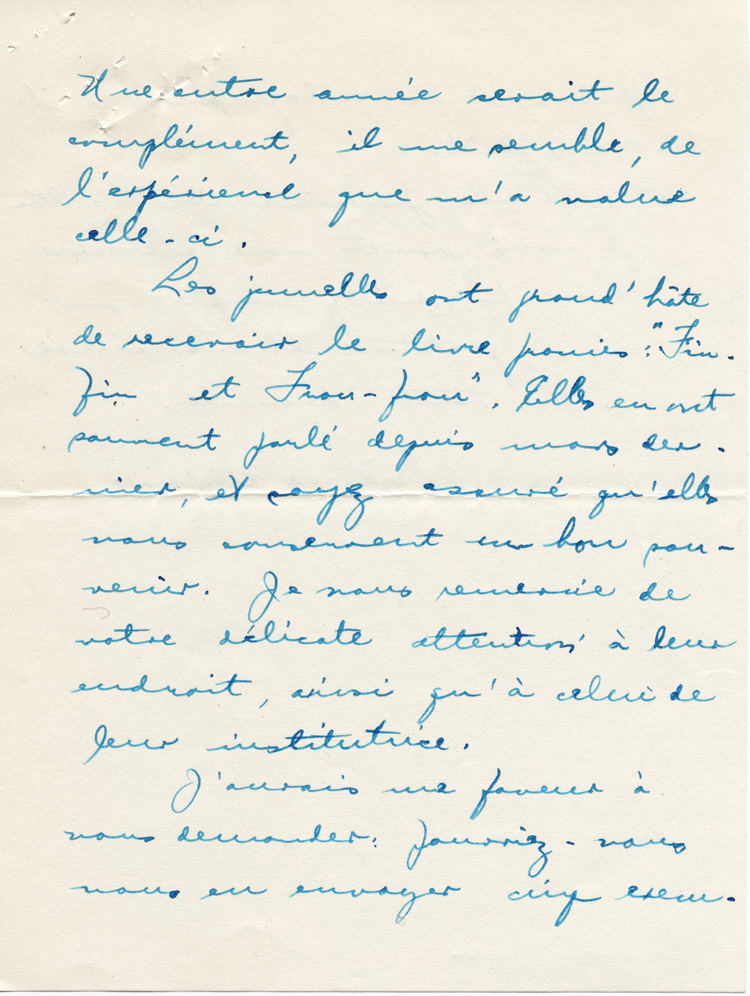 Une autre année serait le
complément, il me semble, de
l'expérience que m'a value
celle-ci.
Les jumelles ont grand'hâte
de recevoir le livre promis : "Fin-
fin et Frou-frou". Elles en ont
souvent parlé depuis mars der-
nier, et soyez assuré qu'elles
vous conservent un bon sou-
venir. Je vous remercie de
votre délicate attention à leur
endroit, ainsi qu'à celui de
leur institutrice.
J'aurais une faveur à
vous demander: pourriez-vous
nous en envoyer cinq exem-